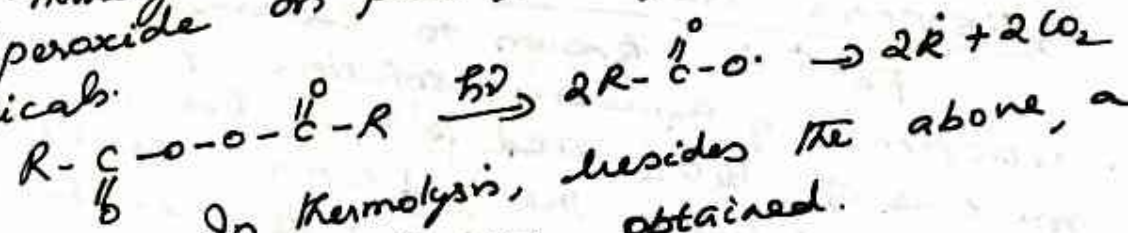 peroxide on
icals.
R-C(=O)-O-O-C(=O)-R —hν→ 2R-C(=O)-O· → 2Ṙ + 2CO₂
In thermolysis, besides the above, a
obtained.